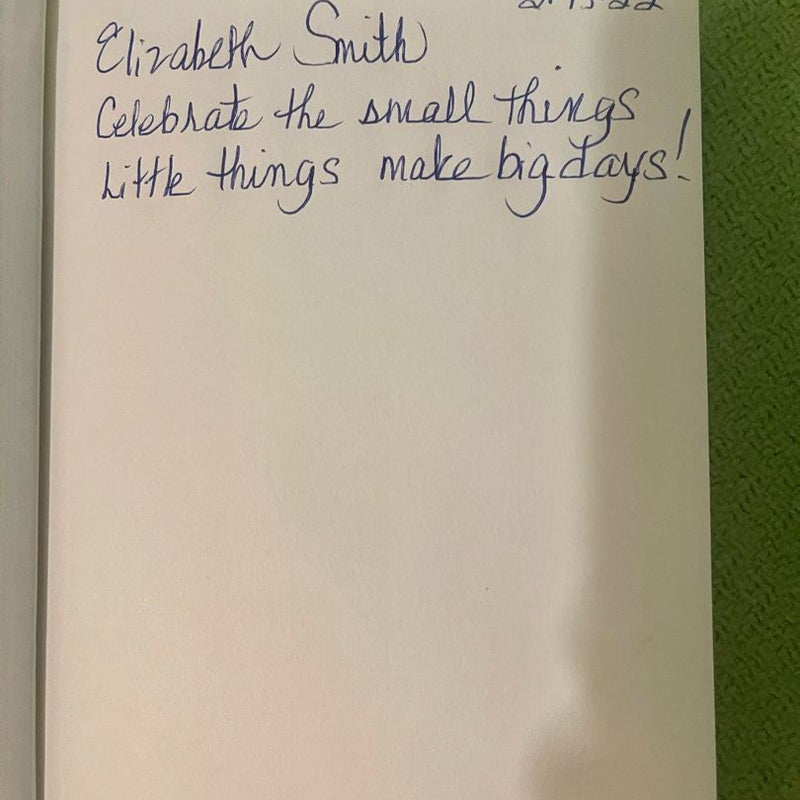 Elizabeth Smith
Celebrate the small things
Little things make big days!